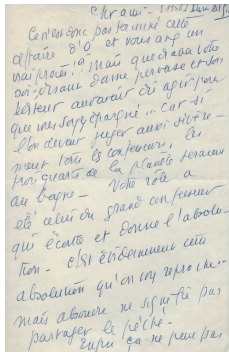 Cher ami -
Ce n'est donc pas terminé cette
affaire d'O et vous avez un
vrai procès! ... mais que diable votre
soi-disant dame perverse et son
auraient dû agir pour
que vous soyez épargné... car si
l'on devait juger aussi sévère-
ment tous les confesseurs, les
trois quarts de la planète seraient
au bagne - Votre rôle a
été celui du grand confesseur
qui écoute et donne l'absolu-
tion - c'est évidemment cette
absolution qu'on vous reproche...
mais absoudre ne signifie pas
partager le péché!
Enfin ça ne peut pas